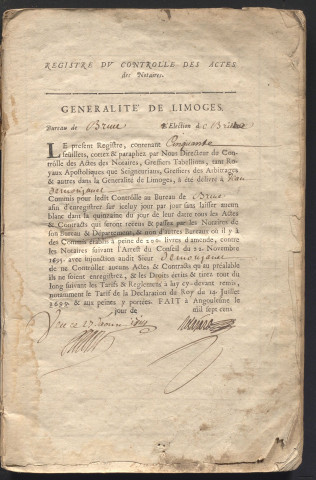 REGISTRE DV CONTROLLE DES ACTES
des Notaires.
GENERALITÉ DE LIMOGES.
Bureau de Brive Election de Brive
LE present Registre, contenant Cinquante
feüillets, cottez & paraphez par Nous Directeur de Con-
trolle des Actes des Notaires, Greffiers Tabellions, tant Ro-
yaux Apostoliques que Seigneuriaux, Greffiers des Arbitrages
& autres dans la Generalité de Limoges, a été délivré à
Demonjauze
Commis pour ledit Controlle au Bureau de Brive
afin d'enregistrer sur iceluy jour par jour sans laisser aucun
blanc dans la quinzaine du jour de leur datte tous les Actes
& Contracts qui seront receus & passez par les Notaires de
son Bureau & Département, & non d'autres Bureaux où il y a
des Commis établis à peine de 200. livres d'amende, contre
les Notaires suivant l'Arrest du Conseil du 22. Novembre
1695. avec injonction audit Sieur Demonjauze
de ne Controller aucuns Actes & Contracts qu'au préalable
ils ne soient enregistrez, & les Droits écrits & tirez tout du
long suivant les Tarifs & Reglemens à luy cy-devant remis,
notamment le Tarif de la Declaration du Roy du 14. Juillet
1699. & aux peines y portées. FAIT à Angoulesme le
jour de mil sept cens